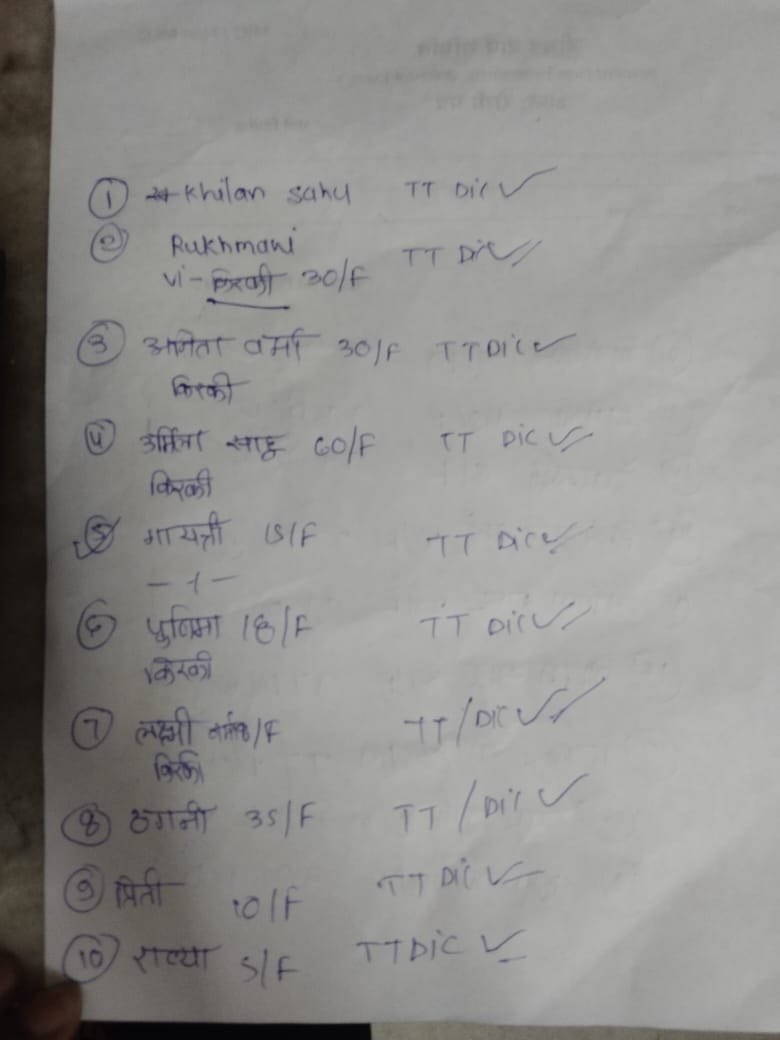 ① Khilan sahu TT Dic ✓
② Rukhmani TT Dic ✓
vi- किरकी 30/F
③ अमिता वर्मा 30/F TT Dic ✓
किरकी
④ उर्मिला साहू 60/F TT Dic ✓
किरकी
⑤ गायत्री 15/F TT Dic ✓
-1-
⑥ पुर्णिमा 18/F TT Dic ✓
किरकी
⑦ लक्ष्मी /F TT/Dic ✓
किरकी
⑧ ठगनी 35/F TT/Dic ✓
⑨ प्रिती 10/F TT Dic ✓
⑩ 5/F TT Dic ✓